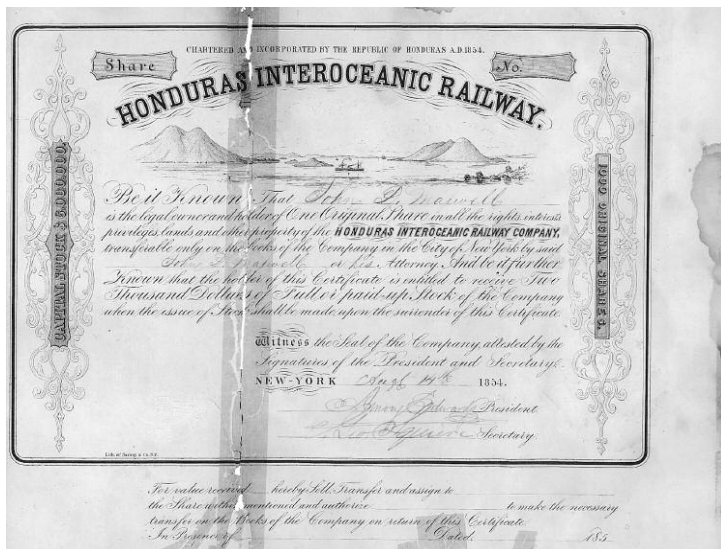 CHARTERED AND INCORPORATED BY THE REPUBLIC OF HONDURAS A.D. 1854.
Share
No.
HONDURAS INTEROCEANIC RAILWAY.
CAPITAL STOCK $ 6,000,000.
1000 ORIGINAL SHARES.
Be it Known That John L. Maxwell
is the legal owner and holder of One Original Share in all the rights, interests
privileges, lands and other property of the HONDURAS INTEROCEANIC RAILWAY COMPANY,
transferable only on the books of the Company in the City of New York by said
John Maxwell or his Attorney. And be it further
Known that the holder of this Certificate is entitled to receive Two
Thousand Dollars of Full or paid-up Stock of the Company
when the issue of Stock shall be made upon the surrender of this Certificate
Witness the Seal of the Company, attested by the
Signatures of the President and Secretary.
NEW-YORK Aug 14th 1854.
President.
Secretary.
Lith. of Sarony & Co. N.Y.
For value received hereby Sell, Transfer and assign to
the Share within mentioned and authorize to make the necessary
transfer on the Books of the Company on return of this Certificate
In Presence of Dated. 185